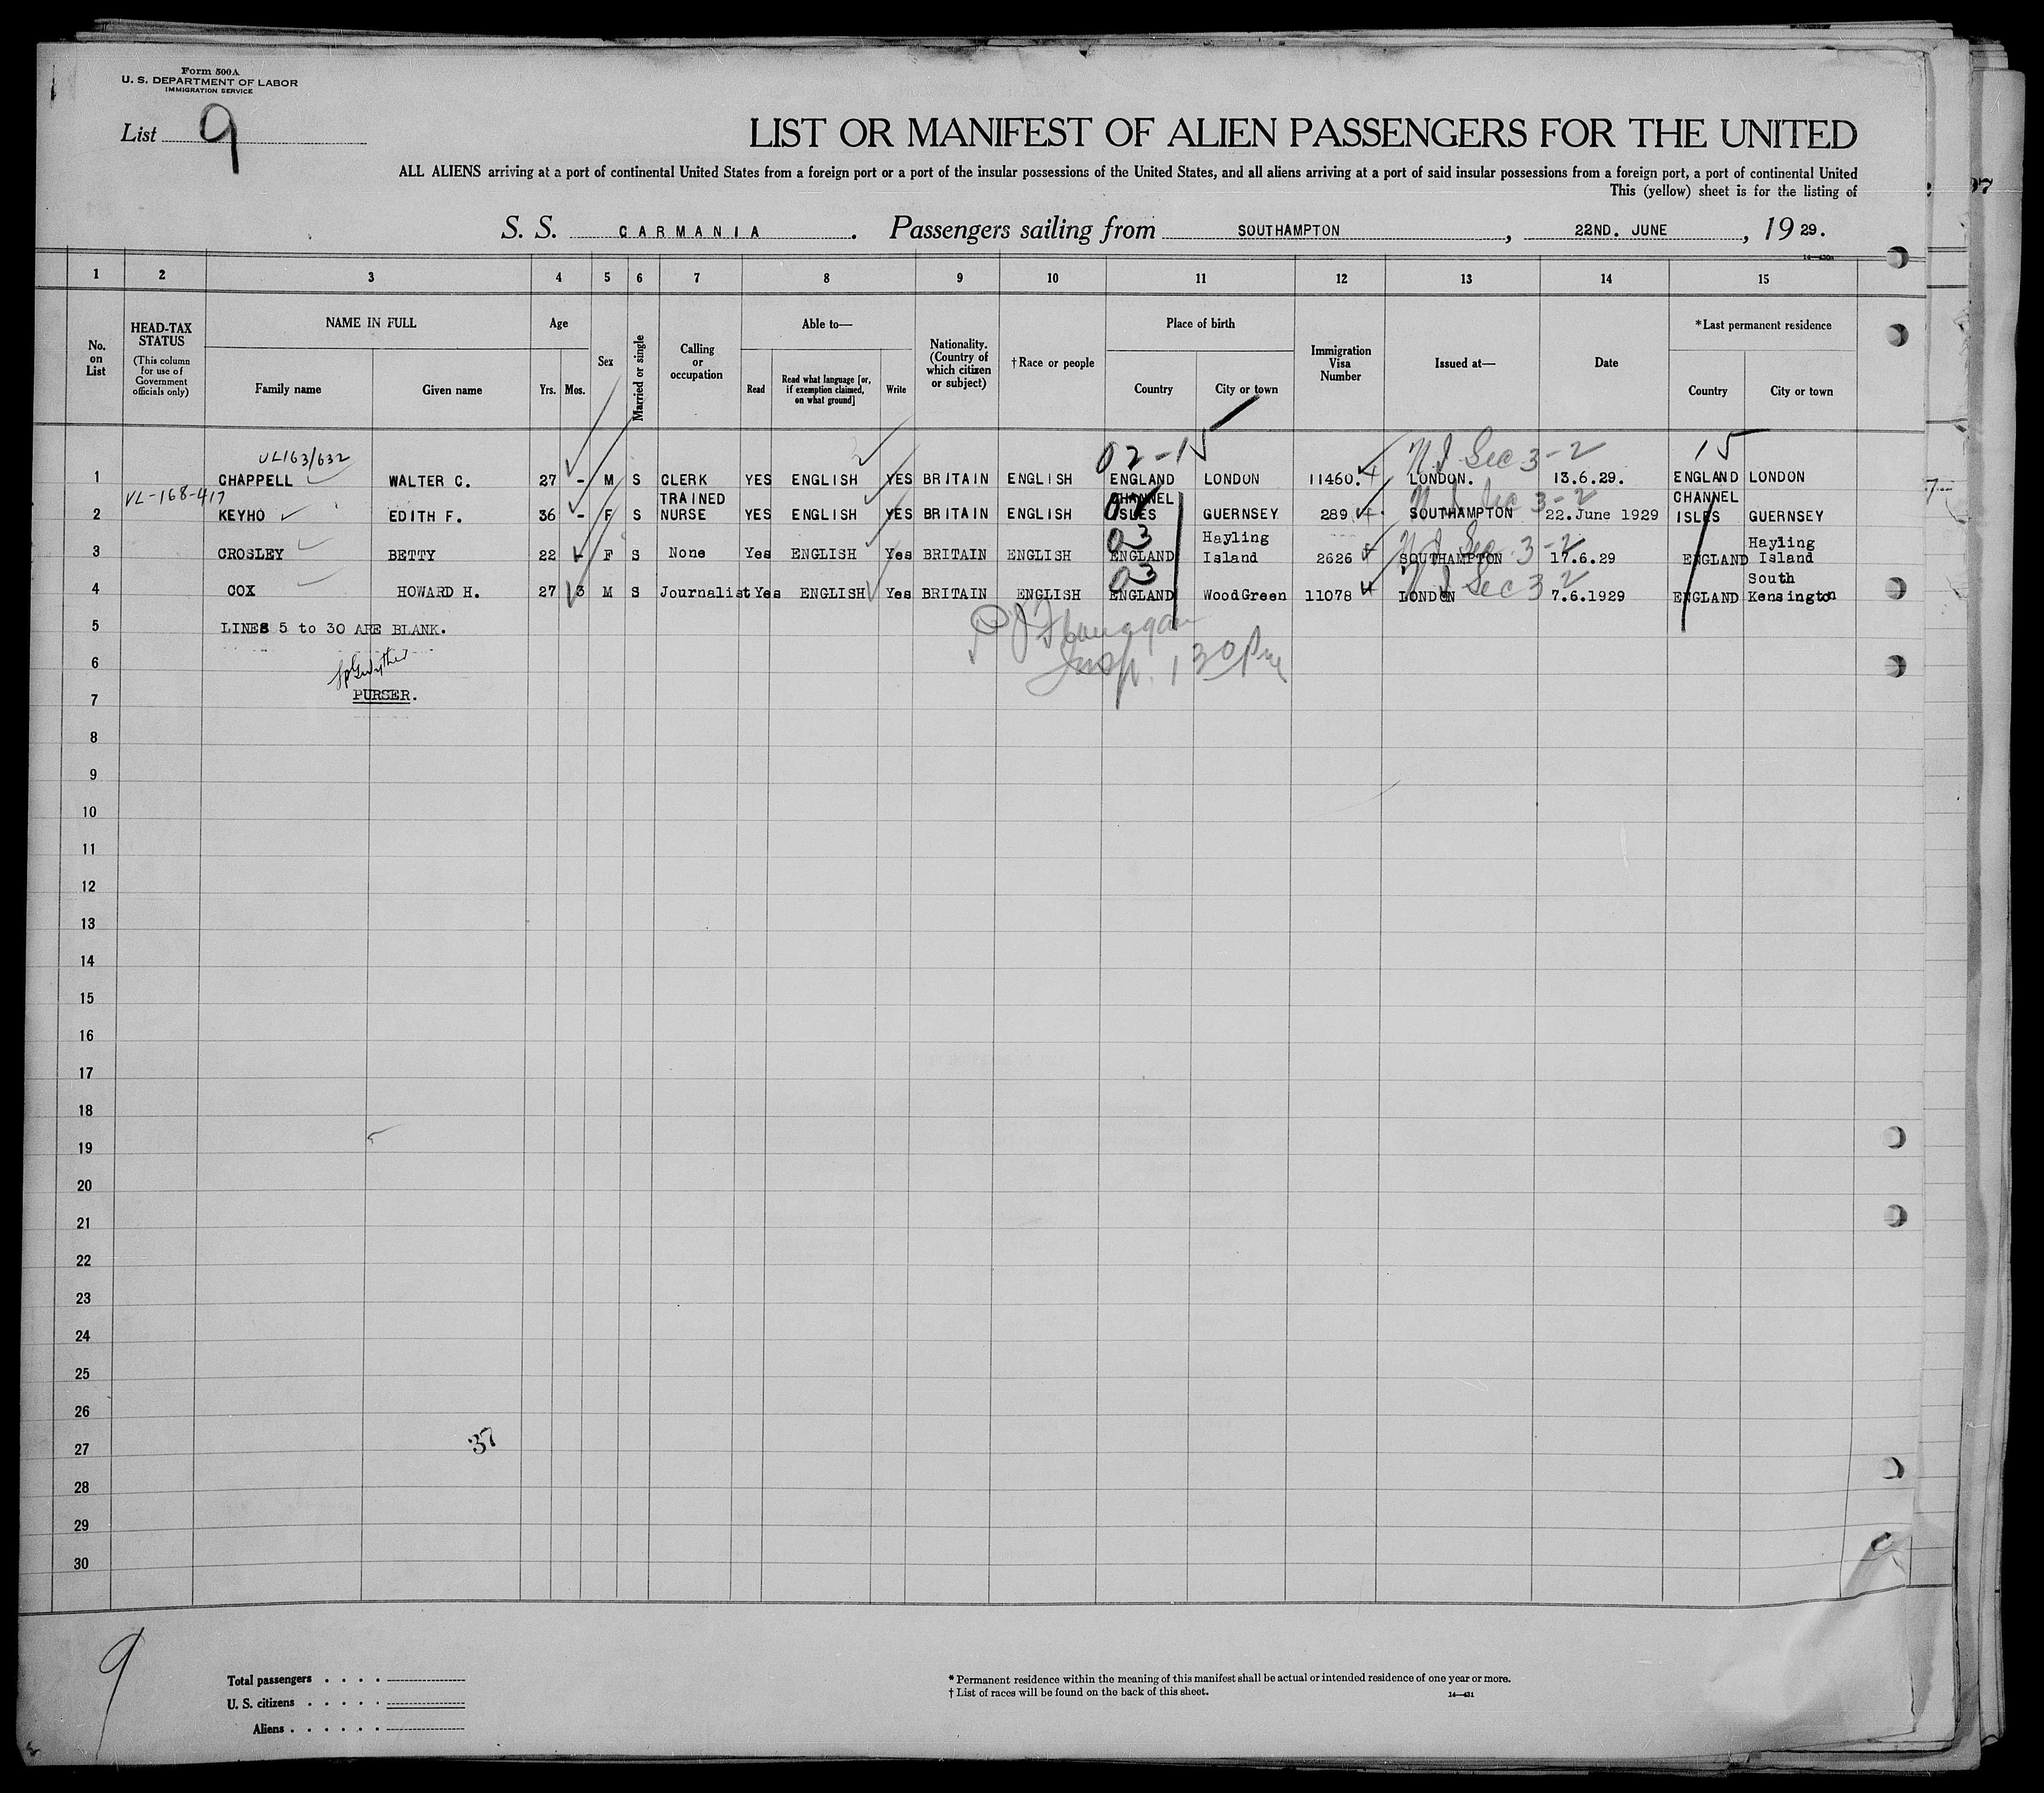 Form 500A
U. S. DEPARTMENT OF LABOR
IMMIGRATION SERVICE
List 9
LIST OR MANIFEST OF ALIEN PASSENGERS FOR THE UNITED
ALL ALIENS arriving at a port of continental United States from a foreign port or a port of the insular possessions of the United States, and all aliens arriving at a port of said insular possessions from a foreign port, a port of continental United
This (yellow) sheet is for the listing of
S. S. CARMANIA. Passengers sailing from SOUTHAMPTON, 22ND. JUNE, 1929.
14—430a
1 2 3 4 5 6 7 8 9 10 11 12 13 14 15
No. on List
HEAD-TAX STATUS
(This column for use of Government officials only)
NAME IN FULL
Family name
Given name
Age
Yrs.
Mos.
Sex
Married or single
Calling or occupation
Able to—
Read
Read what language [or, if exemption claimed, on what ground]
Write
Nationality. (Country of which citizen or subject)
†Race or people
Place of birth
Country
City or town
Immigration Visa Number
Issued at—
Date
*Last permanent residence
Country
City or town
VL163/632 02-15 N I Sec 3-2 15
1 CHAPPELL WALTER C. 27 - M S CLERK YES ENGLISH YES BRITAIN ENGLISH ENGLAND LONDON 11460. LONDON. 13.6.29. ENGLAND LONDON
VL-168-417 N I Sec 3-2
2 KEYHO EDITH F. 36 - F S TRAINED NURSE YES ENGLISH YES BRITAIN ENGLISH CHANNEL ISLES GUERNSEY 289 SOUTHAMPTON 22.June 1929 CHANNEL ISLES GUERNSEY
03 N I Sec 3-2
3 CROSLEY BETTY 22 - F S None Yes ENGLISH Yes BRITAIN ENGLISH ENGLAND Hayling Island 2626 SOUTHAMPTON 17.6.29 ENGLAND Hayling Island
03 N I Sec 3 2
4 COX HOWARD H. 27 3 M S Journalist Yes ENGLISH Yes BRITAIN ENGLISH ENGLAND WoodGreen 11078 LONDON 7.6.1929 ENGLAND South Kensington
5 LINES 5 to 30 ARE BLANK.
Insp. 1 30 Pm
6
PURSER.
7
8
9
10
11
12
13
14
15
16
17
18
19
20
21
22
23
24
25
26
37
27
28
29
30
9
Total passengers . . . .
U. S. citizens . . . . .
Aliens . . . . . .
* Permanent residence within the meaning of this manifest shall be actual or intended residence of one year or more.
† List of races will be found on the back of this sheet.
14—431